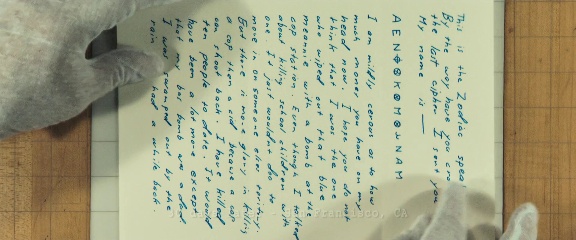 This is the Zodiac speak
By the way have you crac
the last cipher I sent you
My name is —
AEN⊕⊗K⊗M⊗⅃NAM
I am mildly cerous as to how
much money you have on my
head now. I hope you do not
think that I was the one
who wiped out that blue
meannie with a bomb at the
cop station. Even though I talked
about killing school children with
one. It just wouldnt do to
move in on someone elses teritory.
But there is more glory in killing
a cop than a cid because a cop
can shoot back. I have killed
ten people to date. It would
have been a lot more except
that my bus bomb was a dud
I was swamped out by the
rain we had a while back.
San Francisco, CA